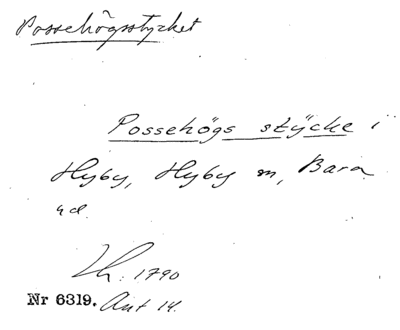 Possehögsstycket
Possehögs stÿcke i
Hyby, Hyby m, Bara
hd.
Lh. 1790
Nr 6319. Akt 14.